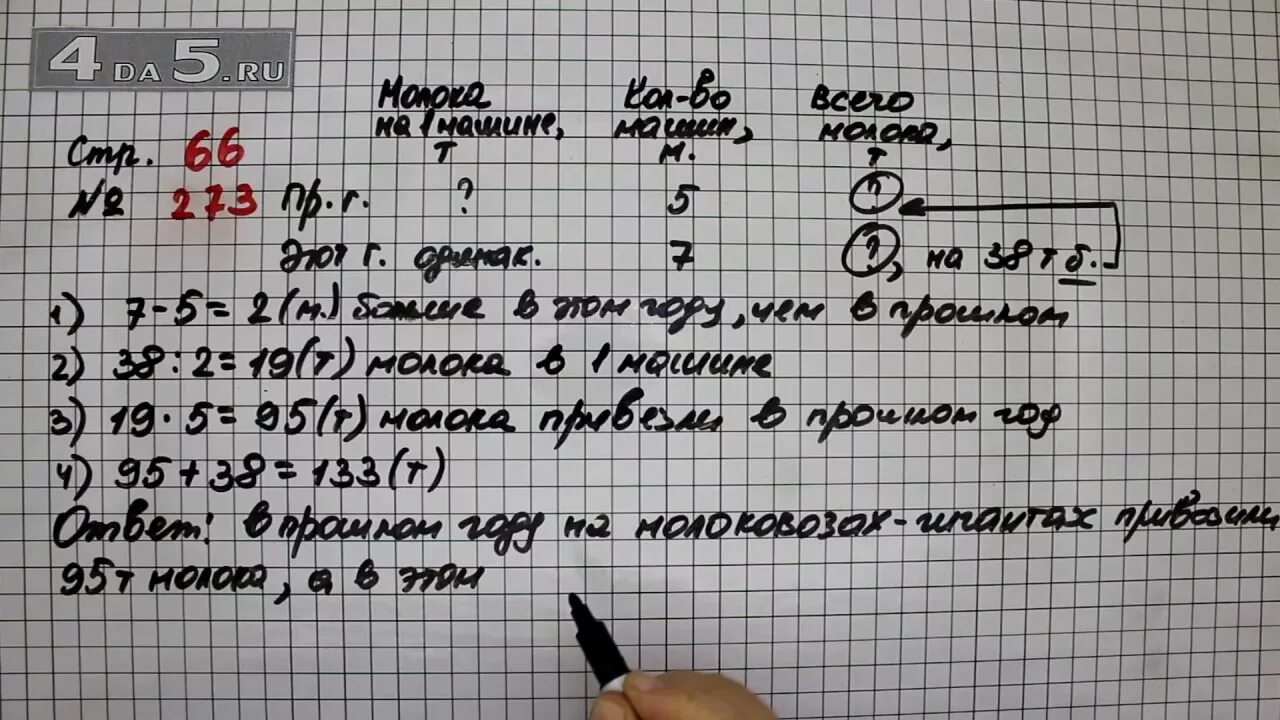 4DA5.RU
Молока Кол-во всего
на 1 машине, машин, молока,
Стр. 66 т м. т
№ 273 Пр. г. ? 5 ?
Этот г. одинак. 7 ?, на 38 т б.
1) 7-5=2 (м.) больше в этом году, чем в прошлом
2) 38:2=19(т) молока в 1 машине
3) 19·5=95(т) молока привезли в прошлом год
4) 95+38=133(т)
Ответ: в прошлом году на молоковозах-гигантах привозили
95т молока, а в этом